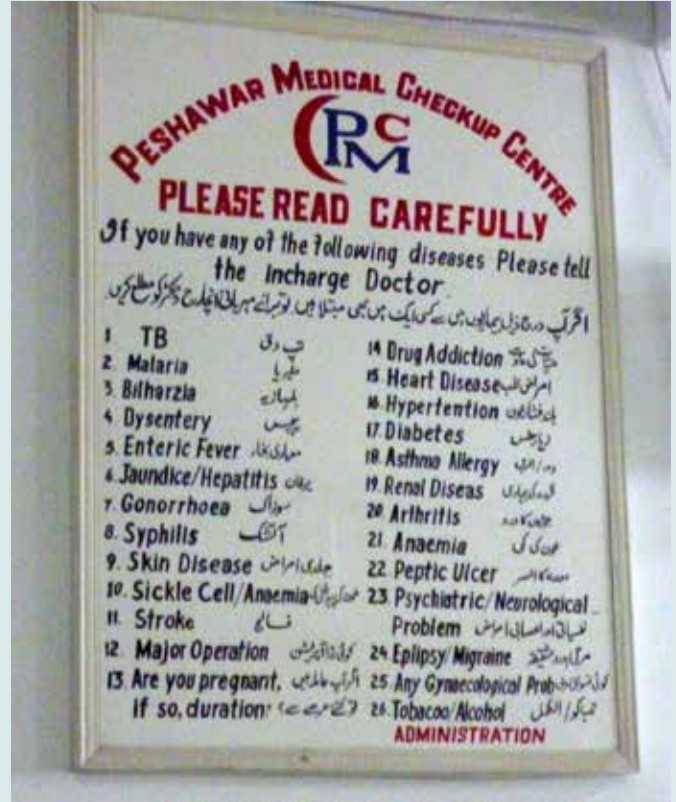 PESHAWAR MEDICAL CHECKUP CENTRE
PMC
PLEASE READ CAREFULLY
If you have any of the following diseases Please tell
the Incharge Doctor
اگر آپ درج ذیل بیماریوں میں سے کسی ایک میں بھی مبتلا ہیں تو برائے مہربانی انچارج ڈاکٹر کو مطلع کریں۔
1 TB تپ دق
2. Malaria ملیریا
3. Bilharzia
4. Dysentery پیچش
5. Enteric Fever معیادی بخار
6. Jaundice/Hepatitis یرقان
7. Gonorrhoea سوزاک
8. Syphilis آتشک
9. Skin Disease جلدی امراض
10. Sickle Cell/Anaemia
11. Stroke فالج
12. Major Operation
13. Are you pregnant, اگر آپ حاملہ ہیں
if so, duration?
14 Drug Addiction
15. Heart Disease امراض قلب
16. Hypertention
17. Diabetes
18. Asthma Allergy
19. Renal Diseas
20 Arthritis
21. Anaemia خون کی کمی
22. Peptic Ulcer
23 Psychiatric/Neurological
Problem نفسیاتی اور اعصابی امراض
24 Eplipsy/Migraine
25. Any Gynaecological Prob
26. Tobacoo/Alcohol تمباکو/الکحل
ADMINISTRATION